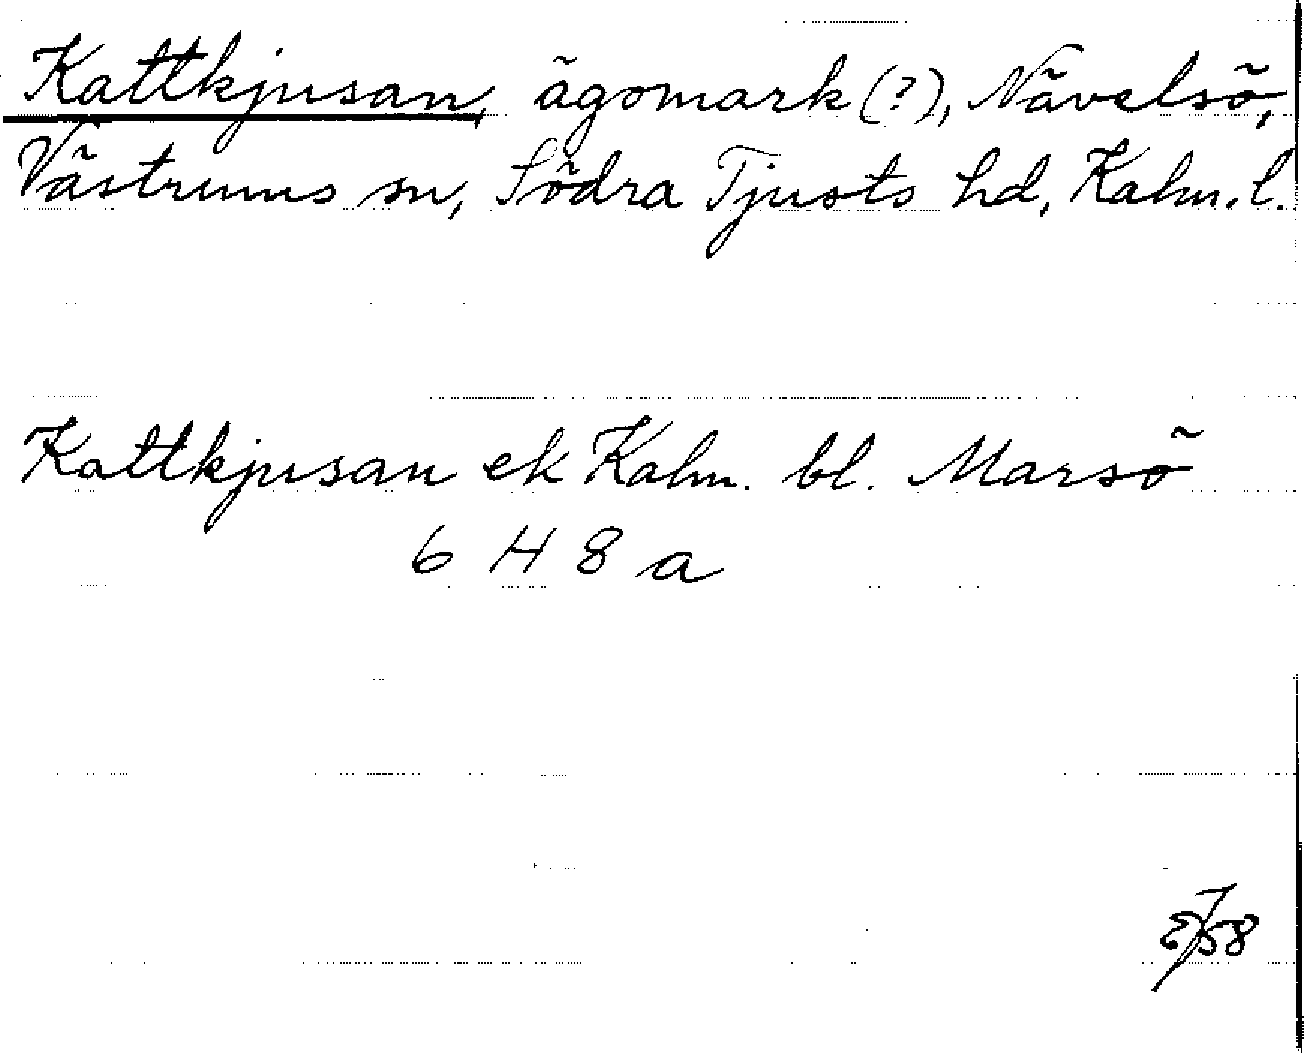 Kattkjusan, ägomark (?), Nävelsö,
Västrums sn, Södra Tjusts hd, Kalm. l.
Kattkjusan ek Kalm. bl. Marsö
6 H 8 a
58